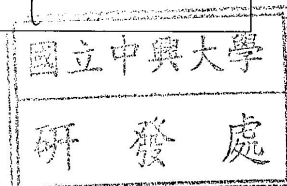 國立中興大學
研發處